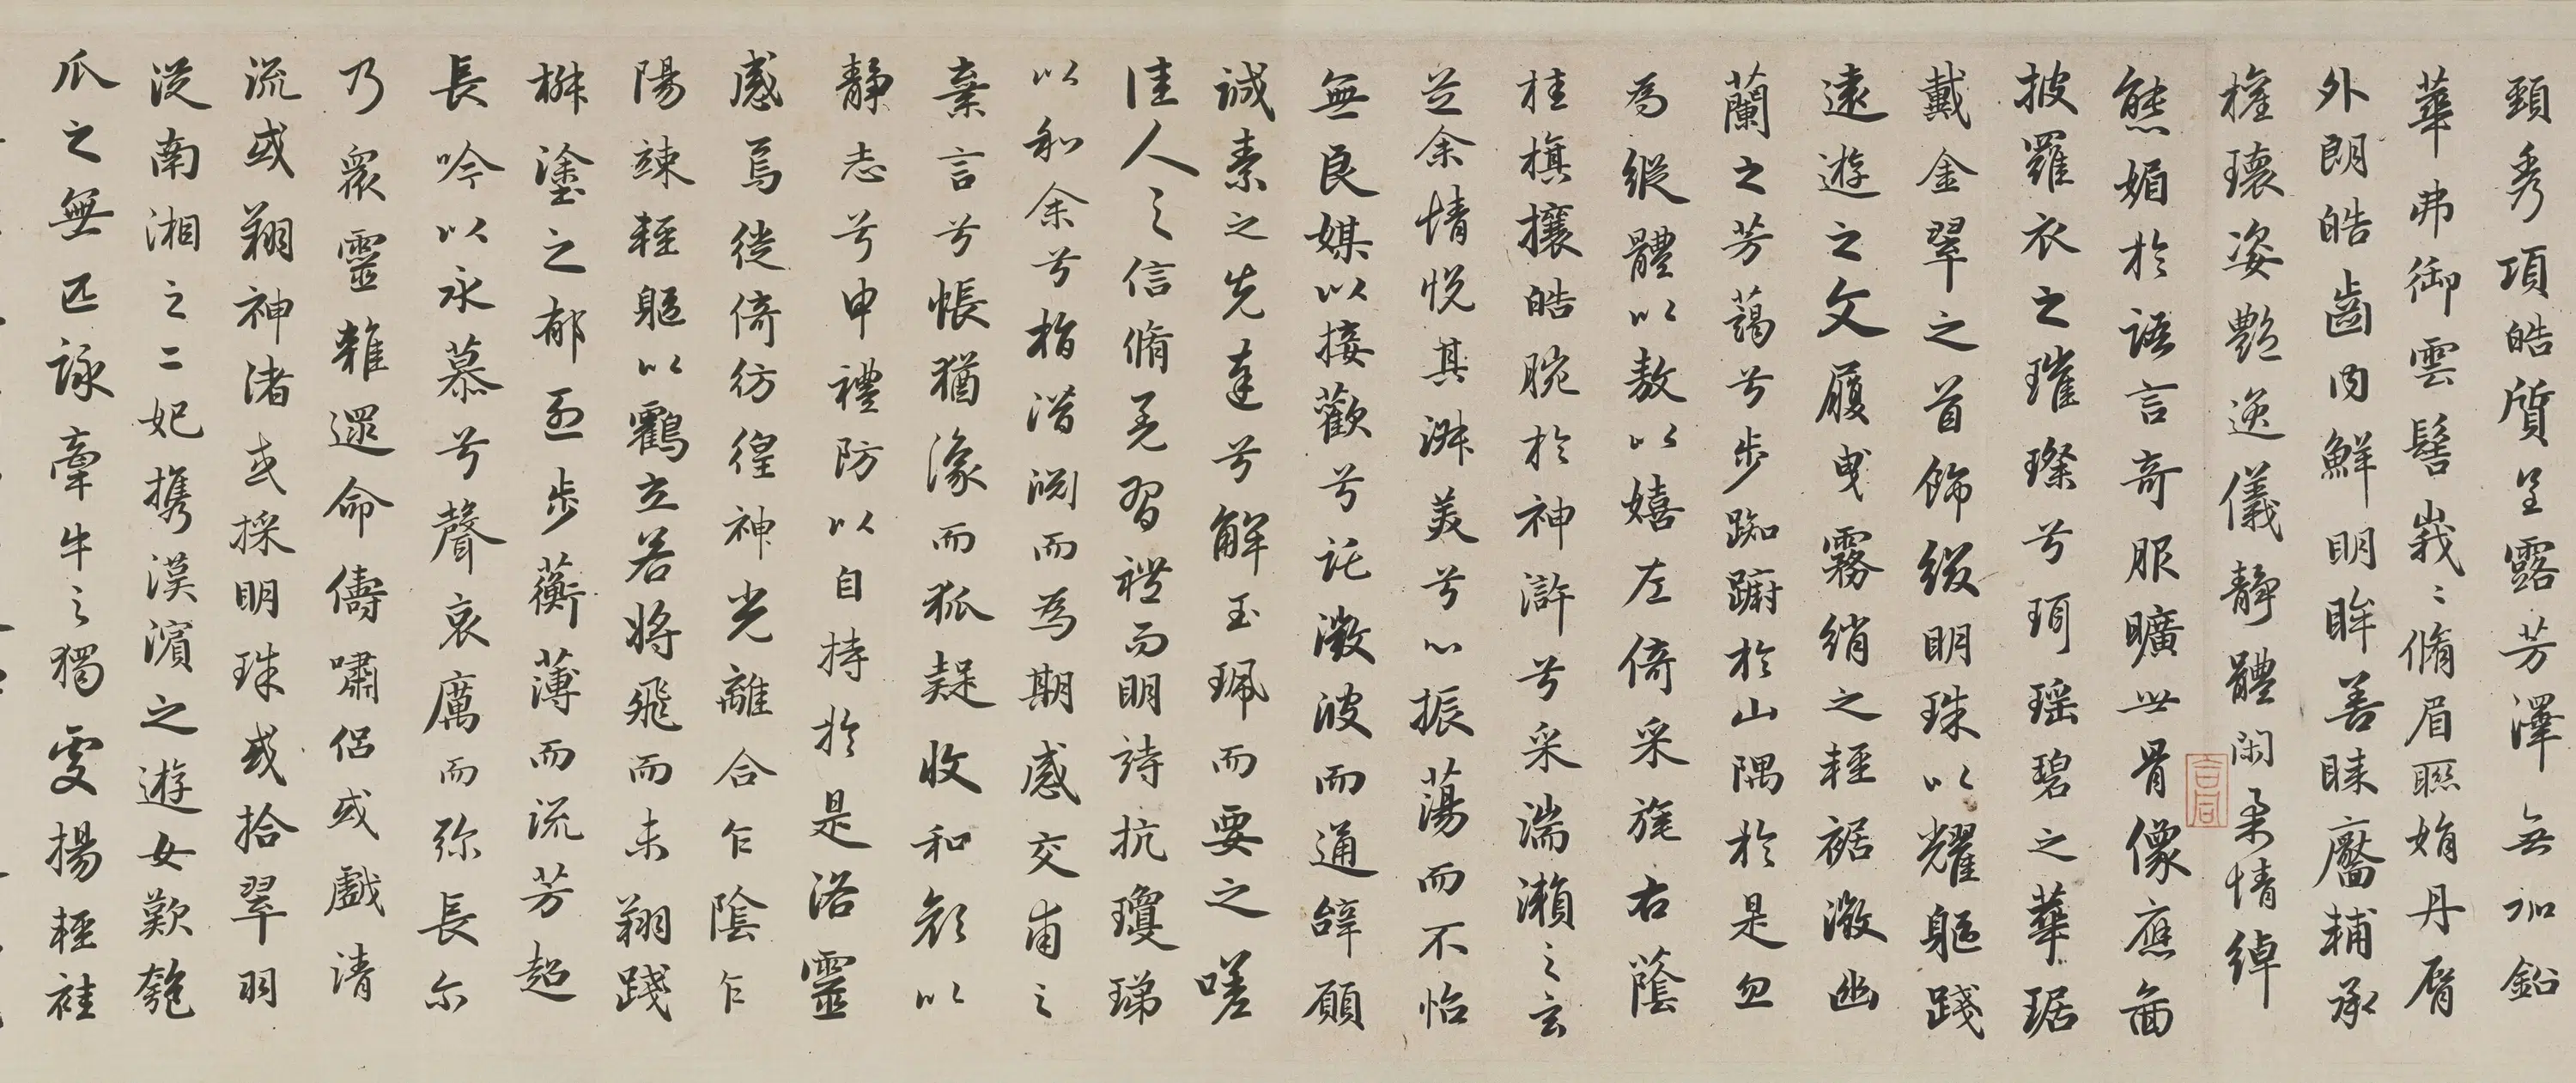 頸秀項皓質呈露芳澤無加鉛
華弗御雲髻峩〻脩眉聯娟丹脣
外朗皓齒内鮮明眸善睞靨輔承
權瓌姿艷逸儀靜體閑柔情綽
態媚於語言奇服曠世骨像應圖
披羅衣之璀璨兮珥瑶碧之華琚
戴金翠之首飾綴明珠以耀軀踐
遠遊之文履曳霧綃之輕裾微幽
蘭之芳藹兮步踟躕於山隅於是忽
焉縱體以敖以嬉左倚采旄右蔭
桂旗攘皓腕於神滸兮采湍瀨之玄
芝余情悦其淑美兮心振蕩而不怡
無良媒以接歡兮託微波而通辭願
誠素之先達兮解玉珮而要之嗟
佳人之信脩羌習禮而明詩抗瓊珶
以和余兮指潛淵而為期感交甫之
棄言兮悵猶豫而狐疑收和顔以
靜志兮申禮防以自持於是洛靈
感焉徙倚彷徨神光離合乍陰乍
陽竦輕軀以鶴立若將飛而未翔踐
椒塗之郁烈步蘅薄而流芳超
長吟以永慕兮聲哀厲而弥長尒
乃衆靈雜遝命儔嘯侶或戲清
流或翔神渚或採明珠或拾翠羽
從南湘之二妃攜漢濱之遊女歎匏
瓜之無匹詠牽牛之獨處揚輕袿